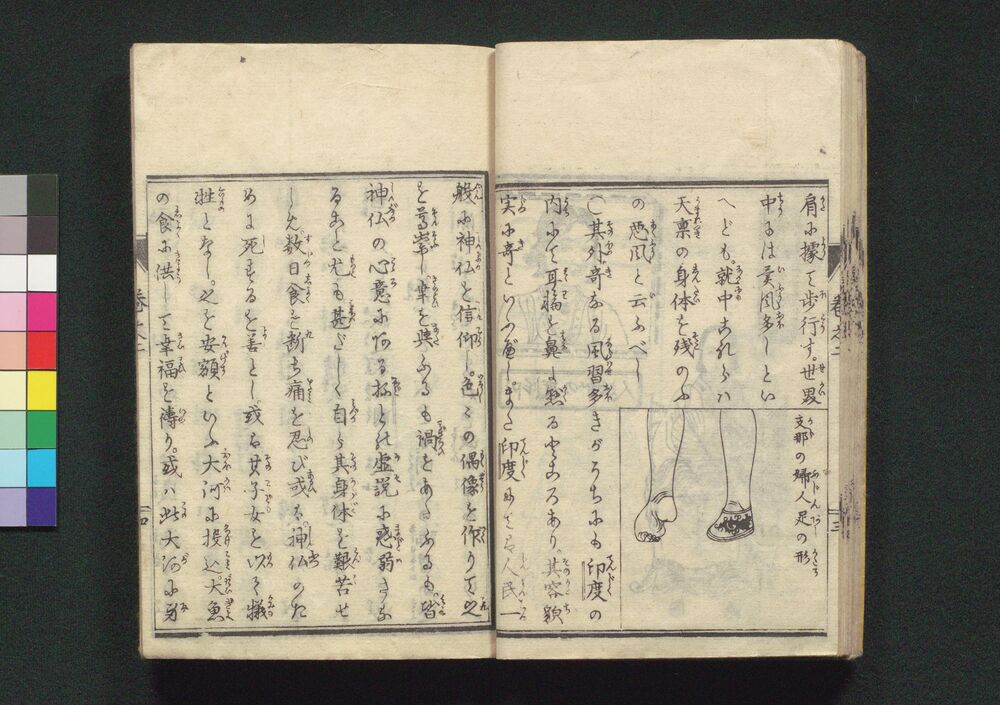 肩に據て歩行す。世界
中には異風多しとい
へども。就中これらハ
天禀の身体を残のふ
の悪風と云ふべし
支那の婦人足の形
〇其外奇なる風習多きがうちにも印度の
内にて耳朶を鼻
実に奇といふべし。また印度にてハ人民一
般に神仏を信仰し。色々の偶像を作りて之
を尊崇し。幸を與ふるも禍をあたふるも。皆
神仏の心意に in る抔との虚説に惑弱する
ること尤も甚だしく自ら其身体を艱苦せ
しめ。数日食を断ち痛を忍び或ハ。神仏のた
めに死するを善とし。或ハ其子女を以て犠
牲となし。之を安額といふ大河に投込。大魚
の食に供して幸福を祷り。或ハ此大河に身
巻之二
三
巻之二
四